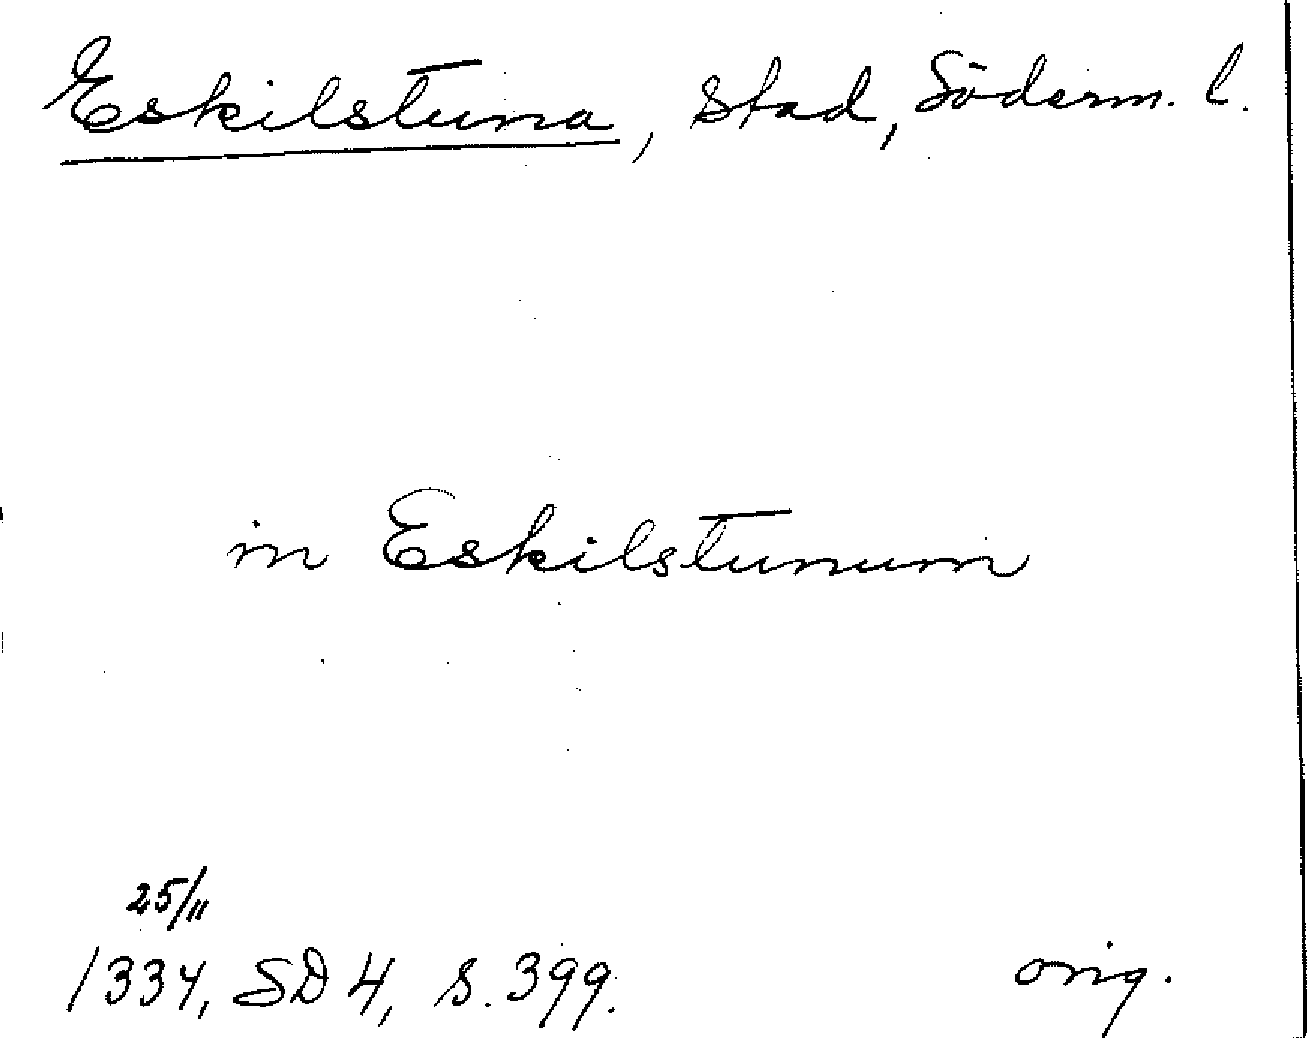 Eskilstuna, stad, Söderm. l.
in Eskilstunum
25/11
1334, SD 4, s. 399.
orig.